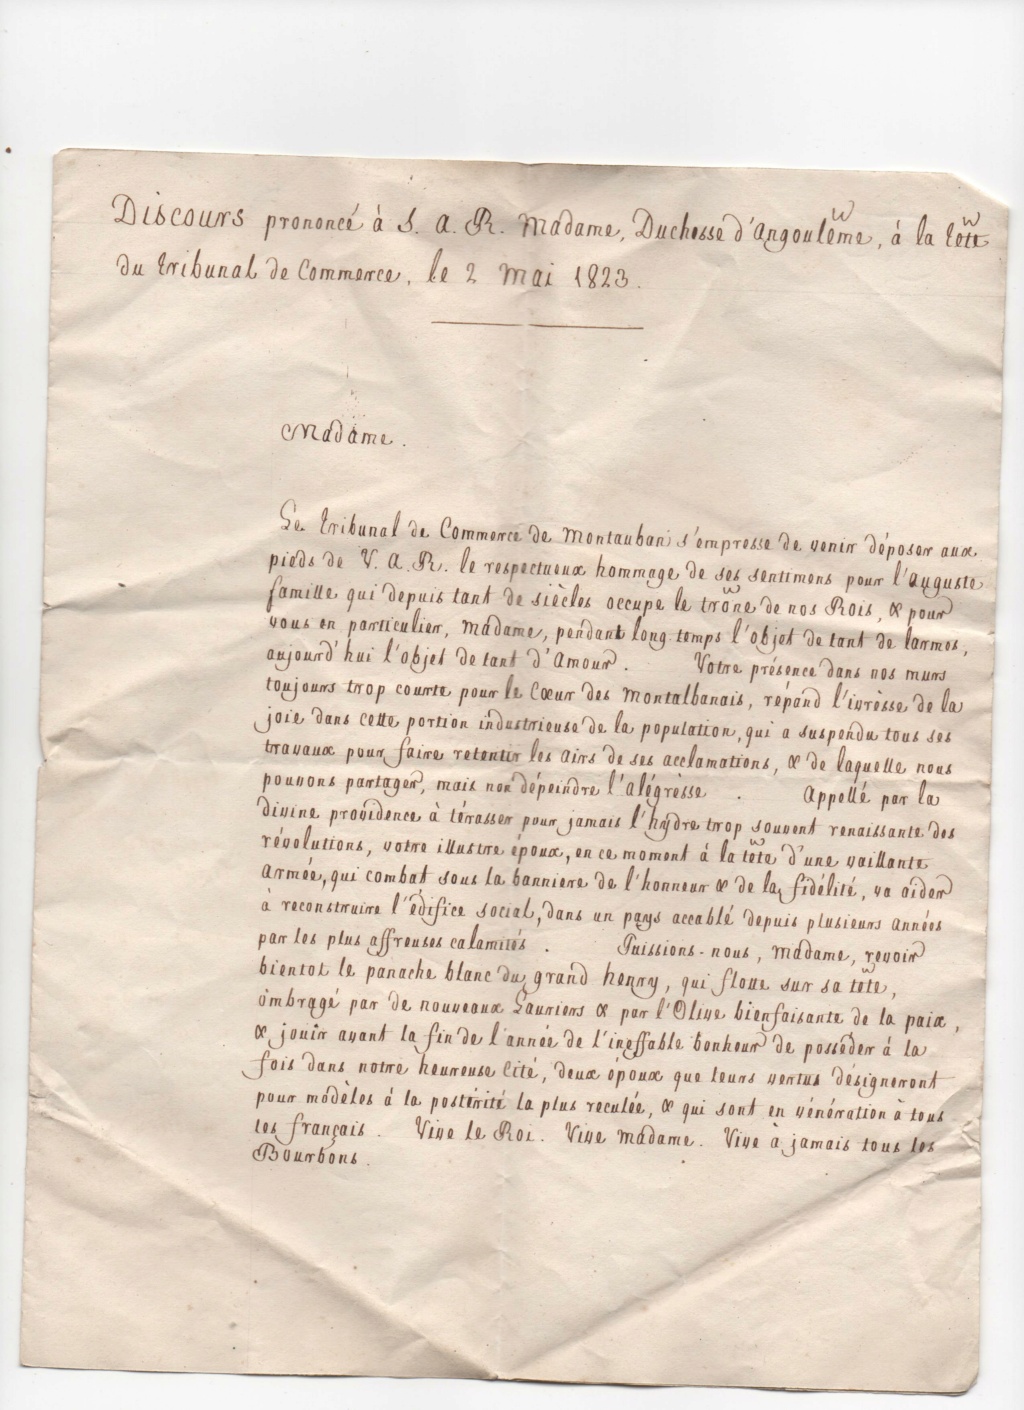 Discours prononcé à S. A. R. Madame, Duchesse d'Angoulême, à la tête
du tribunal de Commerce, le 2 Mai 1823.
Madame.
Le tribunal de Commerce de Montauban s'empresse de venir déposer aux
pieds de V. A. R. le respectueux hommage de ses sentimens pour l'auguste
famille qui depuis tant de siècles occupe le trône de nos Rois, & pour
vous en particulier, Madame, pendant long-temps l'objet de tant de larmes,
aujourd'hui l'objet de tant d'Amour. Votre présence dans nos murs
toujours trop courte pour le Cœur des Montalbanais, répand l'ivrèsse de la
joie dans cette portion industrieuse de la population, qui a suspendu tous ses
travaux pour faire retentir les airs de ses acclamations, & de laquelle nous
pouvons partager, mais non dépeindre l'alégrèsse. Appellé par la
divine providence à térasser pour jamais l'hydre trop souvent renaissante des
révolutions, votre illustre époux, en ce moment à la tête d'une vaillante
armée, qui combat sous la banniere de l'honneur & de la fidélité, va aider
à reconstruire l'édifice social, dans un pays accablé depuis plusieurs années
par les plus affreuses calamités. Puissions-nous, Madame, revoir
bientot le panache blanc du grand henry, qui flotte sur sa tête,
ômbragé par de nouveaux Lauriers & par l'Olive bienfaisante de la paix,
& jouir avant la fin de l'année de l'ineffable bonheur de posséder à la
fois dans notre heureuse Cité, deux époux que leurs vertus désigneront
pour modèles à la postérité la plus reculée, & qui sont en vénération à tous
les français. Vive le Roi. Vive Madame. Vive à jamais tous les
Bourbons.